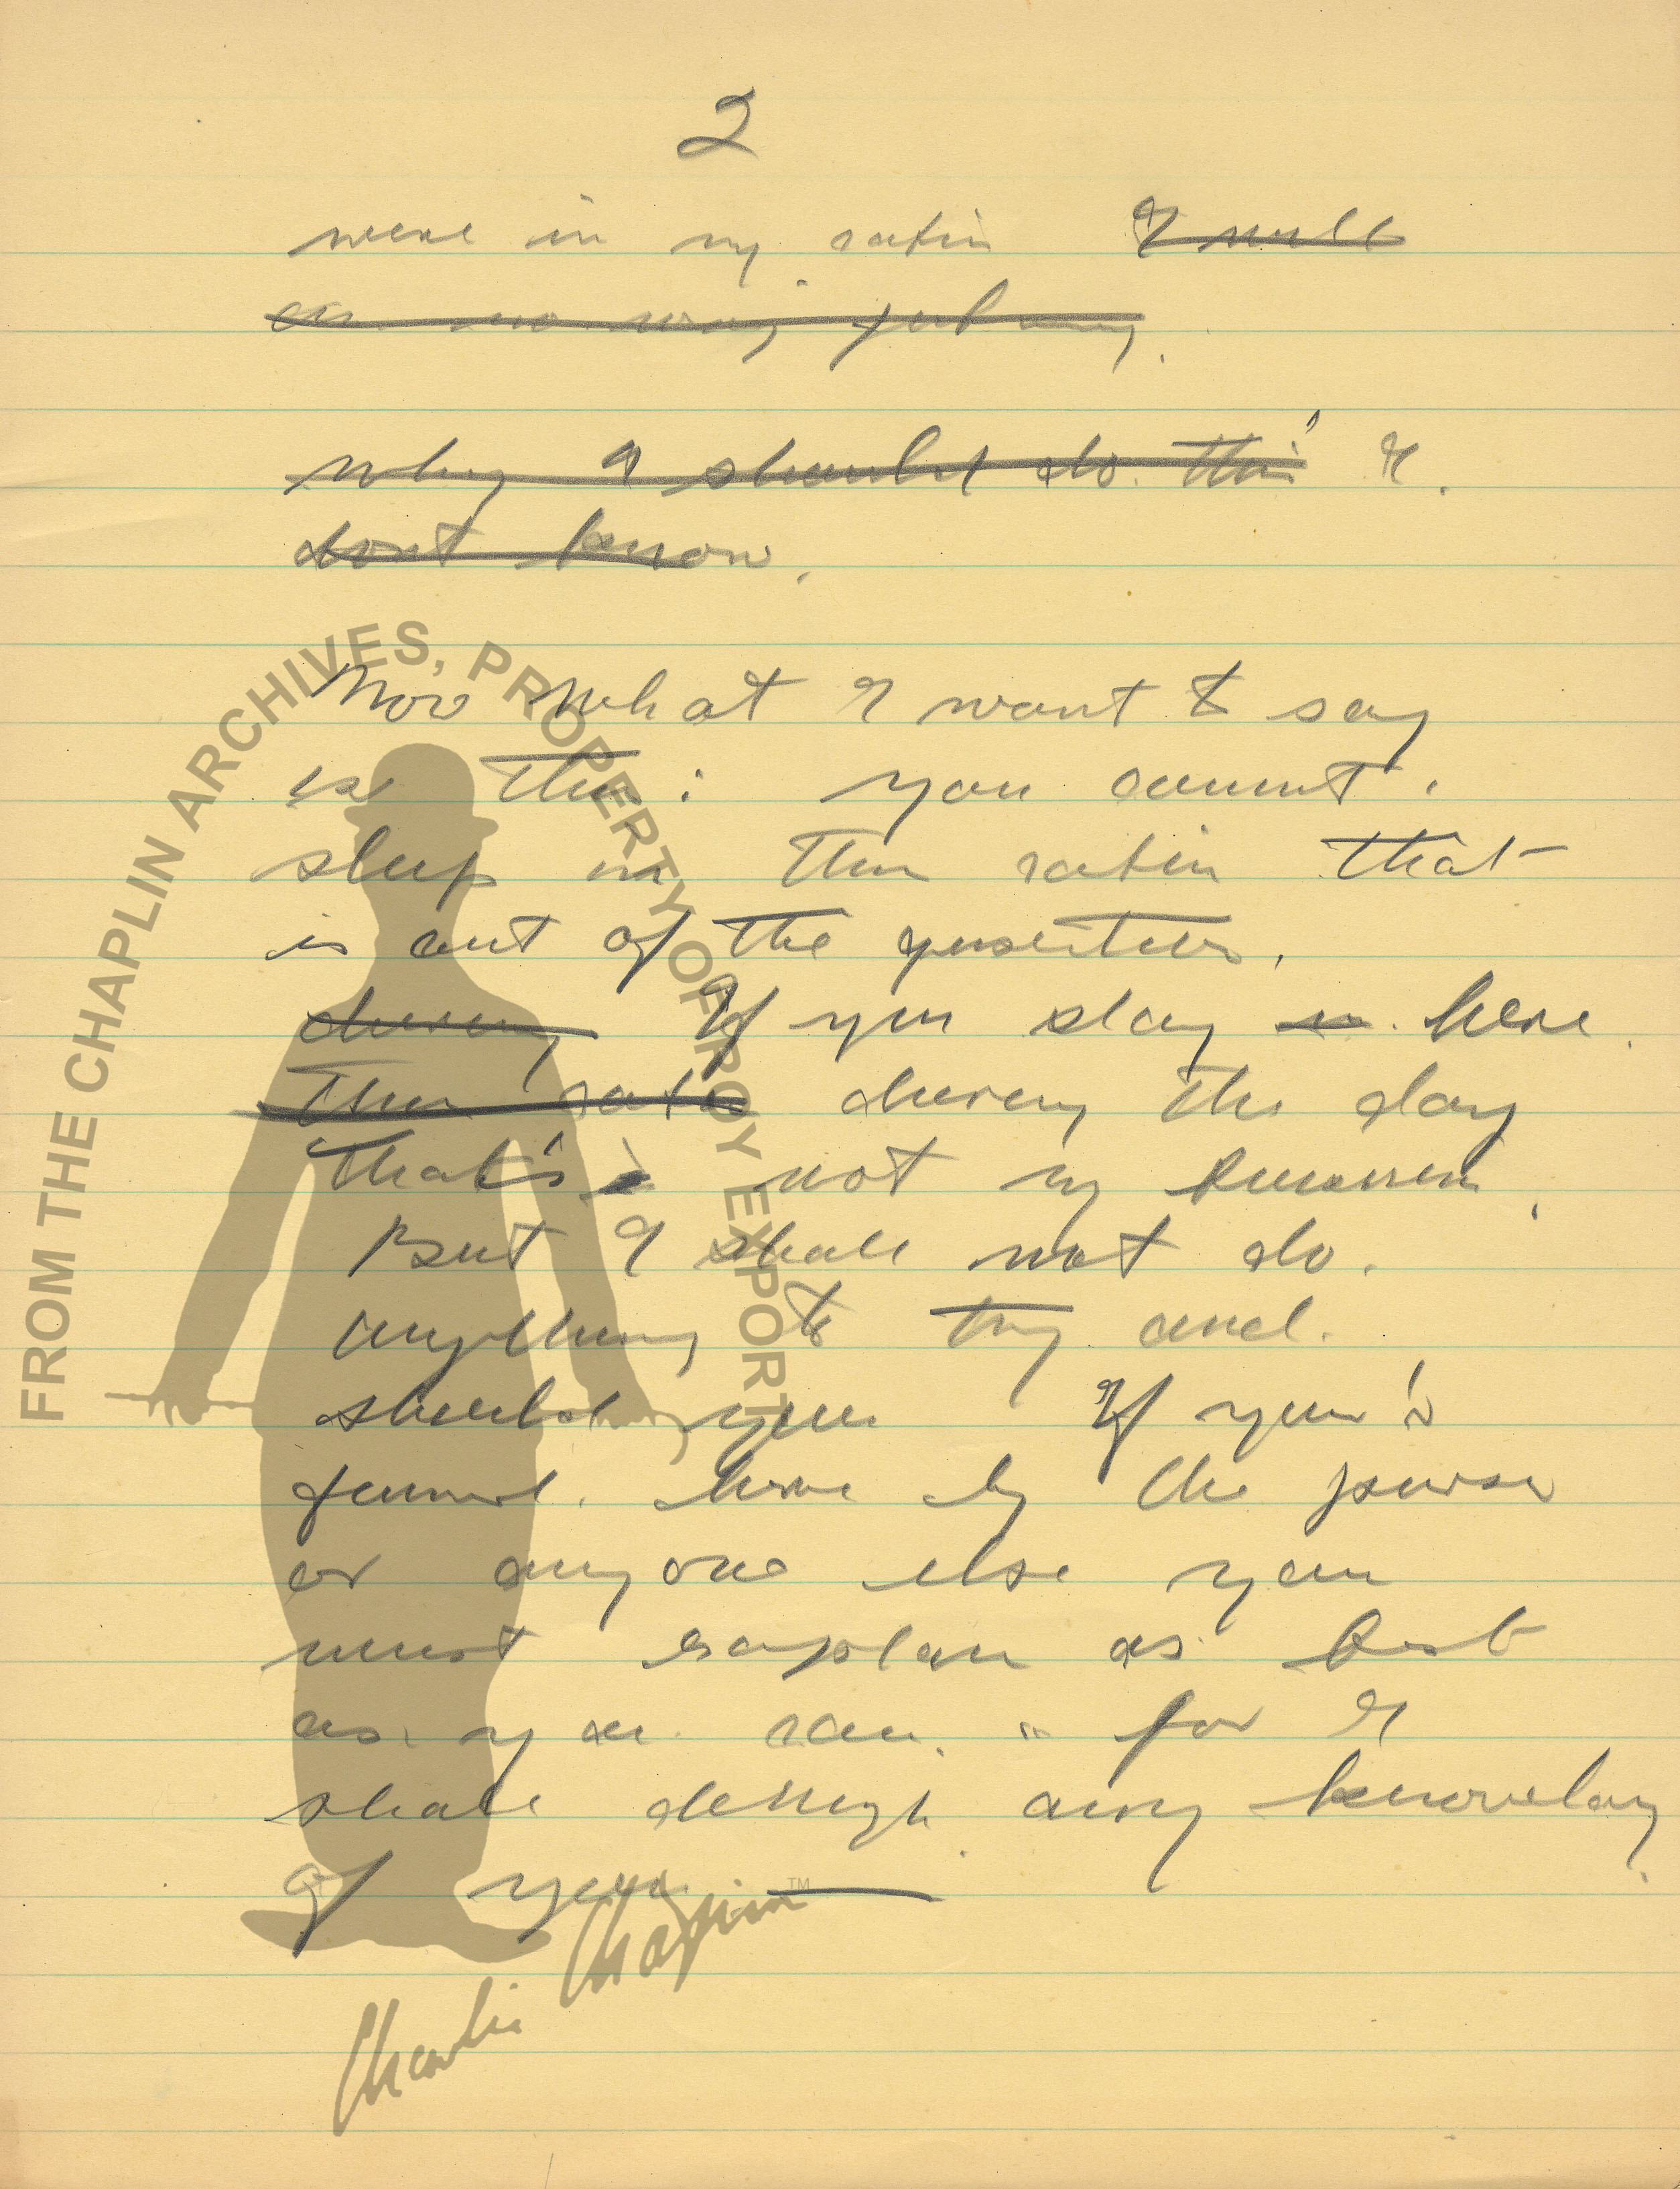 2
were in my cabin I will
in no way
why I should do this I
dont know.
Now what I want to say
is this : you cannot
sleep in this cabin that
is out of the question.
during If you stay in here
this cabin during the day
that's not my business,
But I shall not do
anything to try and
should you If you're
found here by the purser
or anyone else you
must explain as best
as you can, for I
shall deny any knowledge
of you
FROM THE CHAPLIN ARCHIVES, PROPERTY OF ROY EXPORT
Charlie Chaplin™